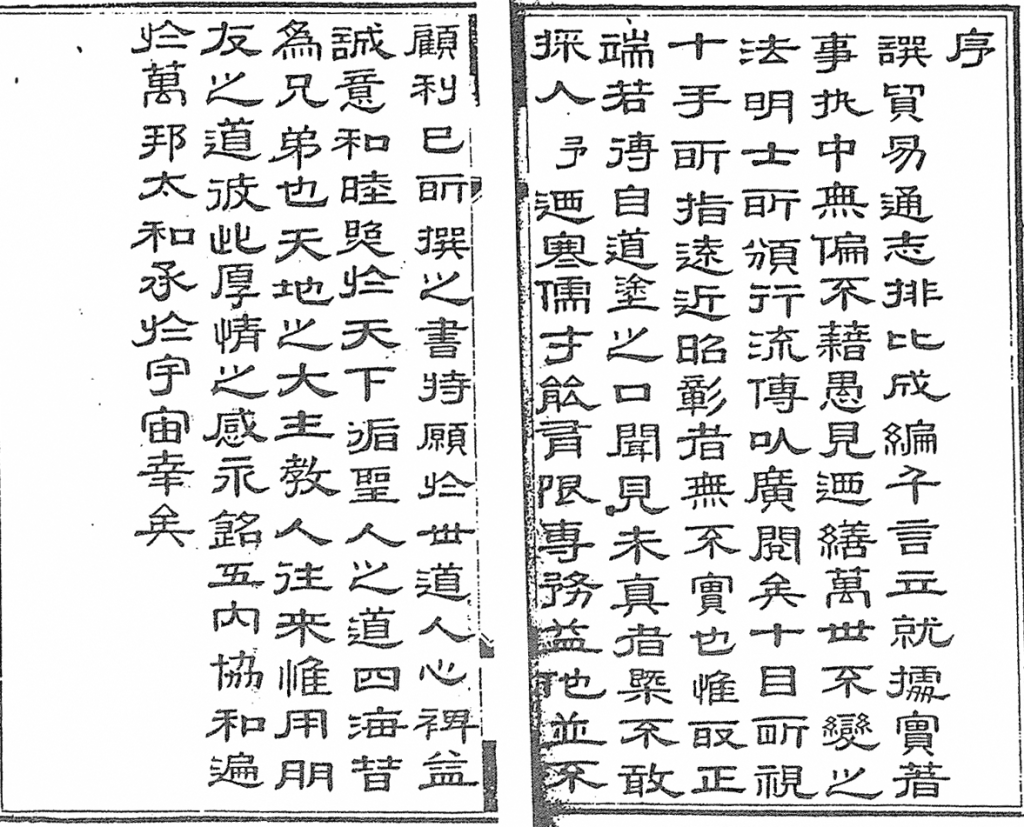 序
譔貿易通志排比成編千言立就據實著
事执中無偏不藉愚見迺繕萬世不變之
法明士所頒行流傳以廣閱矣十目所視
十手所指遠近昭彰者無不實也惟取正
端若得自道塗之口聞見未真者槩不敢
採入 予迺寒儒才能有限專務益他並不
顧利己所撰之書特願於世道人心裨益
誠意和睦於天下循聖人之道四海昔
為兄弟也天地之大主教人往来惟用朋
友之道彼此厚情之感永銘五內協和遍
於萬邦太和承於宇宙幸矣